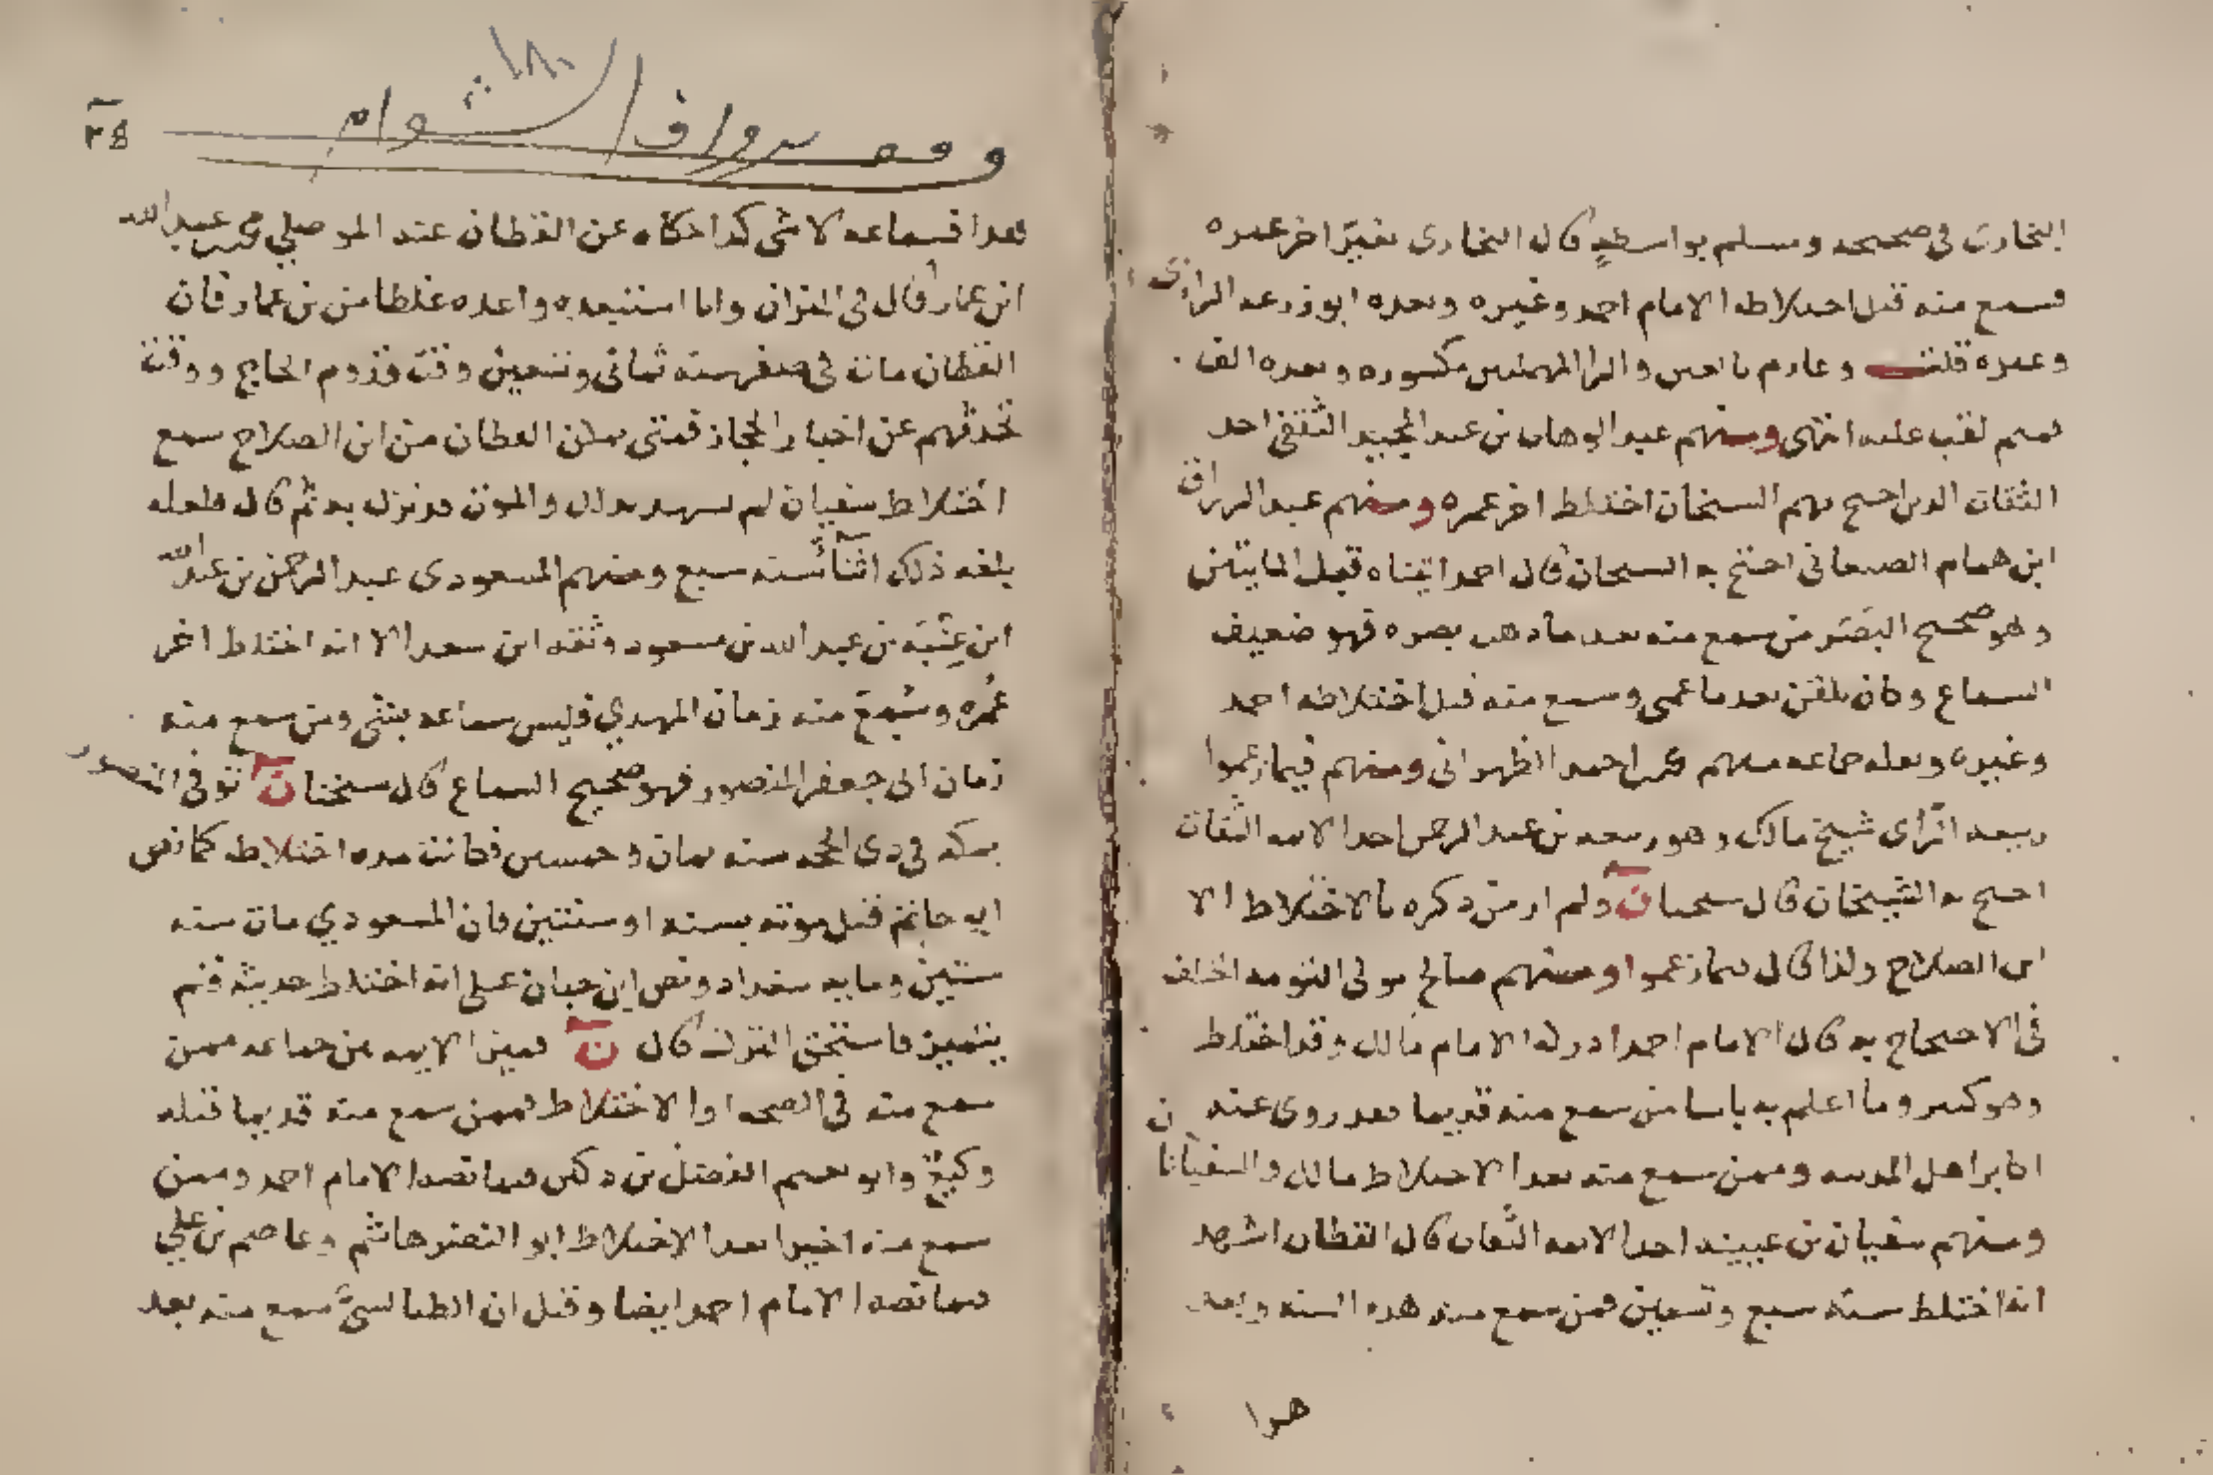 البخارى في صحيحه ومسلم بواسطةٍ قال البخارى تغيّر اخر عمره
فسمع منه قبل اختلاطه الامام احمد وغيره وبعده ابو زرعه الرازى
وغيره قلت وعارم بالعين والرا المهملتين مكسوره وبعده الف
لقب عليه انتهى ومنهم عبد الوهاب بن عبد المجيد الثقفى احد
الثقات الذين احتج بهم الشيخان اختلط اخر عمره ومنهم عبد الرزاق
ابن همام الصنعانى احتج به الشيخان قال احمد اتيناه قبل المايتين
وهو صحيح البصر من سمع منه بعد ما ذهب بصره فهو ضعيف
السماع وكان يلقن بعد ما عمى وسمع منه قبل اختلاطه احمد
وغيره وبعده جماعه منهم احمد الظهرانى ومنهم فيما زعموا
ربيعه الرّاى شيخ مالك وهو ربيعه بن عبد الرحمن احد الايمه الثقات
احتج به الشيخان قال شيخنا ن ولم ار من ذكره بالاختلاط الا
ابن الصلاح ولذا قال فيما زعموا ومنهم صالح مولى التومه اختلف
فى الاحتجاج به قال الامام احمد ادركه الامام مالك وقد اختلط
وهو كبير وما اعلم به باسا من سمع منه قديما فقد روى عنه
اكابر اهل المدينه وممن سمع منه بعد الاختلاط مالك والسفيانان
ومنهم سفيان بن عيينه احد الايمه الثقات قال القطان اشهد
انه اختلط سنه سبع وتسعين فمن سمع منه هذه السنه وبعد
هوا
٢٤
١٨٠
هذا فسماعه لا شى كذا حكاه عن القطان عند الموصلي محمد بن عبد الله
ابن عمار قال فى الميزان وانا استبعده واعده غلطا من بن عمار فان
القطان مات فى صفر سنه ثمانى وتسعين وقت قدوم الحاج ووقت
تحدثهم عن اخبار الحجاز فمتى يمكن القطان من ان الصلاح سمع
اختلاط سفيان ثم يشهد بذلك والموت قد نزل به ثم قال فلعله
بلغه ذلك اثنآ سنه سبع ومنهم المسعودى عبد الرحمن بن عبد الله
ابن عتبة بن عبد الله بن مسعود وثقه ابن سعد الا انه اختلط اخر
عمره وسُمِعَ منه زمان المهدي فليس سماعه بشى ومن سمع منه
زمان ابى جعفر المنصور فهو صحيح السماع قال شيخنا ن توفى المنصور
بمكه فى ذى الحجه سنه ثمان وخمسين فكانت مده اختلاطه كما نص
ابو حاتم قبل موته بسنه او سنتين فان المسعودي مات سنه
ستين ومايه ببغداد ونص ابن حبان على انه اختلط حديثه فلم
يتميز فاستحق الترك قال ن فميز الايمه بين جماعه ممن
سمع منه فى الصحه او الاختلاط فممن سمع منه قديما قبله
وكيع وابو نعيم الفضل بن دكين فيما نصه الامام احمد وممن
سمع منه اخيرا بعد الاختلاط ابو النضر هاشم وعاصم بن علي
فيما نصه الامام احمد ايضا وقيل ان الطيالسىّ سمع منه بعد